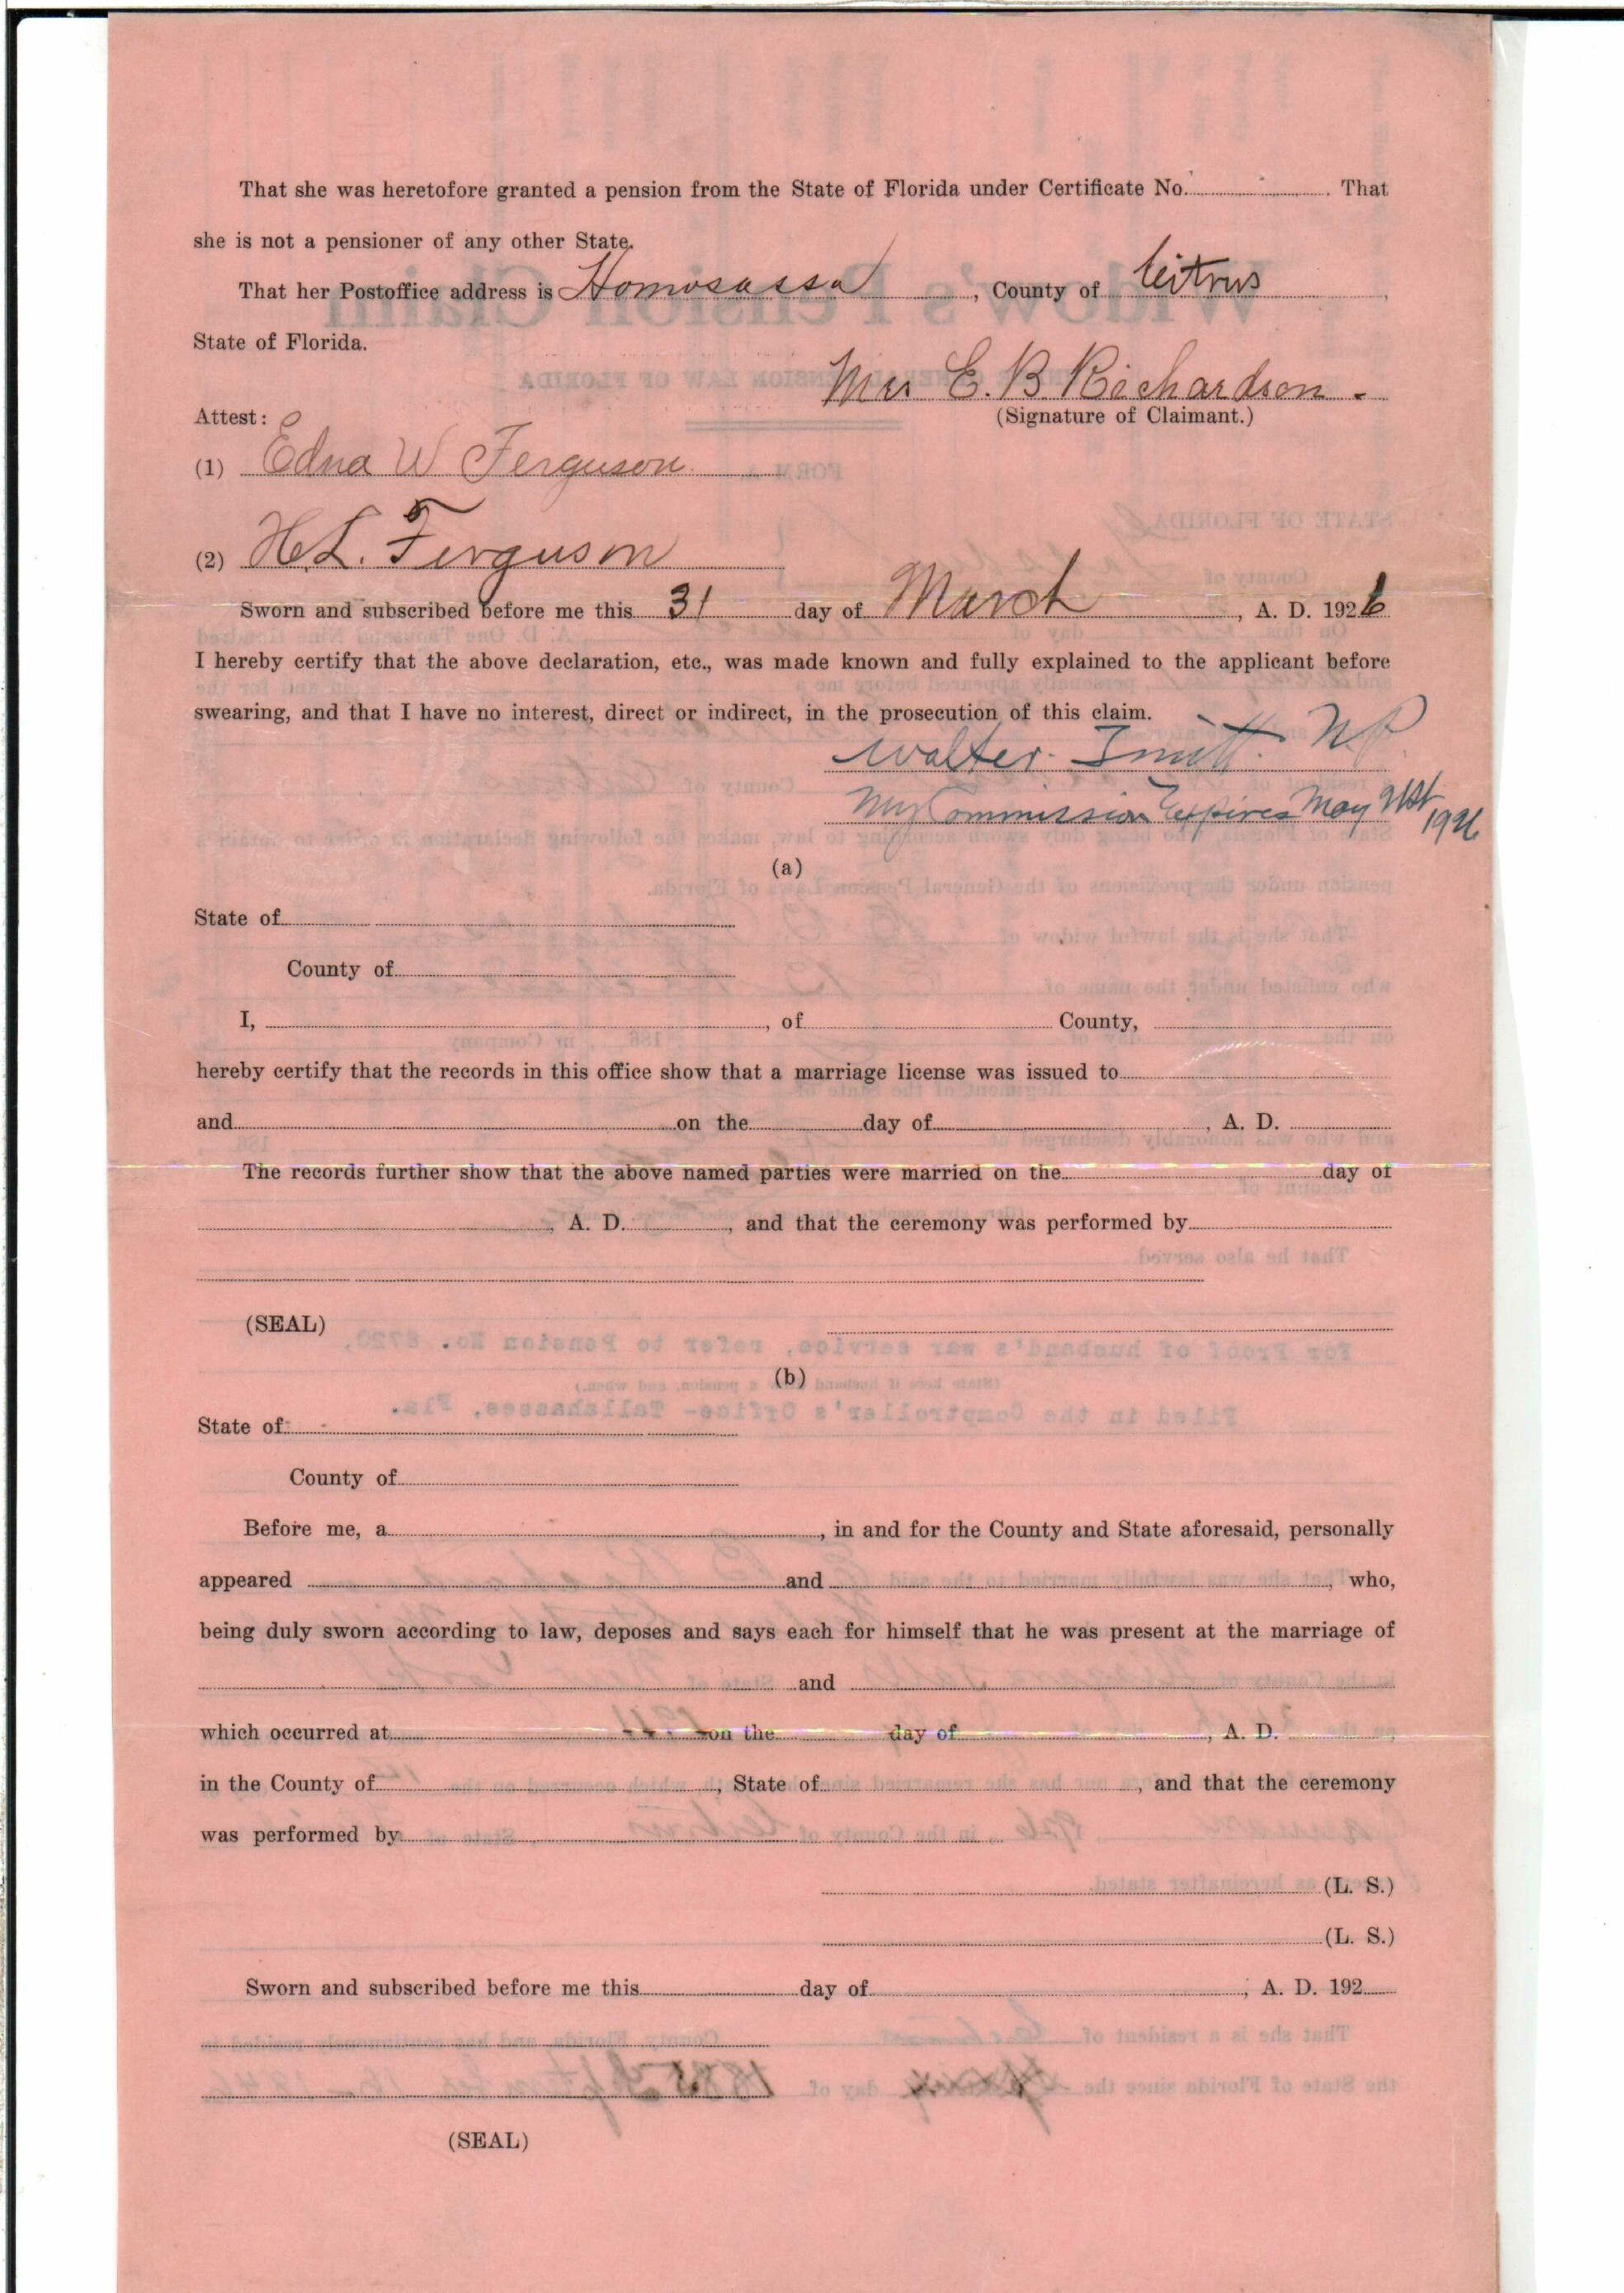 That she was heretofore granted a pension from the State of Florida under Certificate No. . That
she is not a pensioner of any other State.
That her Postoffice address is Homosassa , County of Citrus ,
State of Florida.
Mrs E. B. Richardson.
(Signature of Claimant.)
Attest:
(1) Edna W Ferguson
(2) H.L. Ferguson
Sworn and subscribed before me this 31 day of March , A. D. 1926
I hereby certify that the above declaration, etc., was made known and fully explained to the applicant before
swearing, and that I have no interest, direct or indirect, in the prosecution of this claim.
Walter Smith N.P.
My Commission Expires May 21st
1926
(a)
State of
County of
I, , of County,
hereby certify that the records in this office show that a marriage license was issued to
and on the day of , A. D.
The records further show that the above named parties were married on the day of
, A. D. , and that the ceremony was performed by
(SEAL)
(b)
State of
County of
Before me, a , in and for the County and State aforesaid, personally
appeared and , who,
being duly sworn according to law, deposes and says each for himself that he was present at the marriage of
and
which occurred at on the day of , A. D. ,
in the County of , State of , and that the ceremony
was performed by
(L. S.)
(L. S.)
Sworn and subscribed before me this day of , A. D. 192
(SEAL)